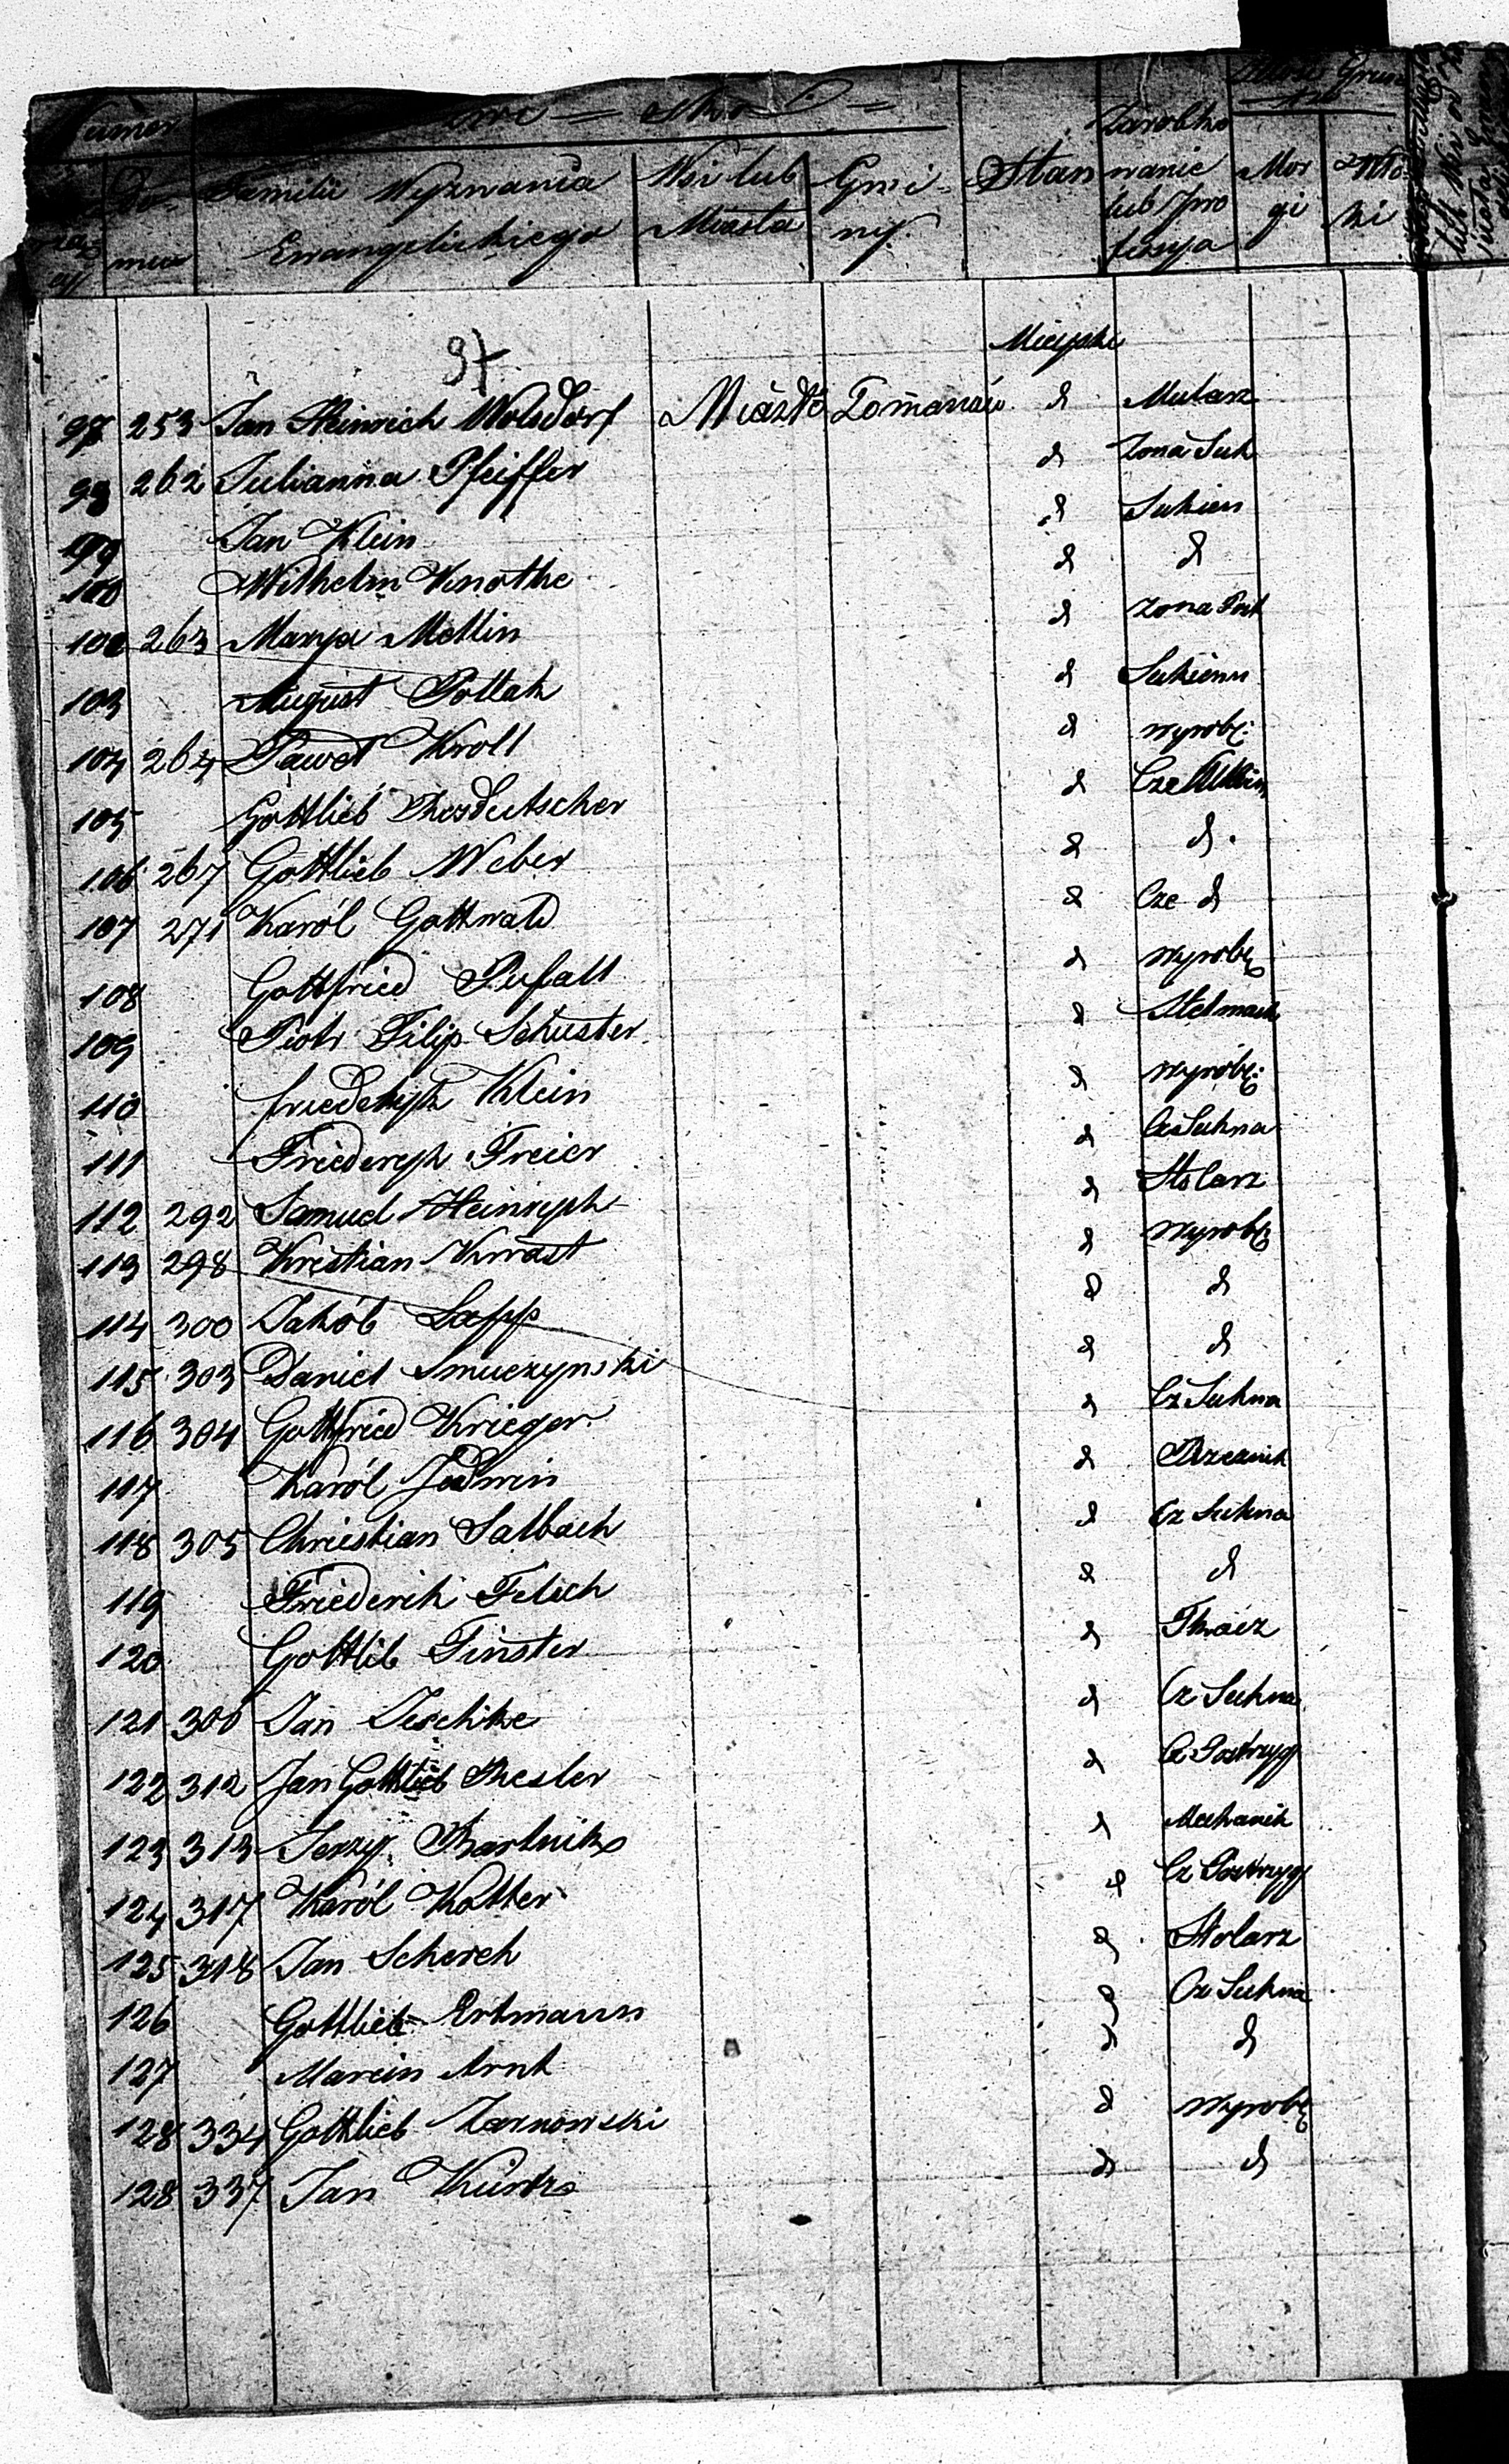 Numer
Familii Wyznania Wsi lub Gmi- Stan Zarobko
Ewangelickiego Miasta ny. wanie Mor
lub pro gi ki
fesya
97 Mieyski
97 253 Jan Heinrich Wolsdorf Miasto Tomaszów d Mularz
98 262 Julianna Pfeiffer d Zona Suk
199 Jan Klein d Sukien
100 Wilhelm Knothe d d
263 Marya Mettin d zona
103 August Pollak d Sukienn
104 264 Paweł Kroll d wyrobę:
105 Gottlieb d Cze
106 267 Gottlieb Weber d d.
107 271 Karól Gottwald d Cze d
108 Gottfried Pufall d wyrobę
109 Piotr Filip Schuster d Stelmach
110 Klein d wyrobę:
111 Friederyk Freier d CzeSukna
112 292 Samuel Heinryph d Stolarz
113 298 Krestian Kwast d wyrobę:
114 300 Jakób Lapp d d
115 303 Daniel Smuczynski d d
116 304 Gottfried Krieger d Cz Sukna
117 Karól Jedwin d Rzeznik
118 305 Chriestian Salbach d Cz Sukna
119 Friederik Felsch d d
120 Gottlib Finster d Tkacz
121 306 Jan Jeschke d Cz Sukna
122 312 Jan Gottlieb Kesler d Cz Postrzyg
123 313 Jerzy d Mechanik
124 317 Karól Kotter d Cz Postrzyg
125 318 Jan Scherch d Stolarz
126 Gottlieb Ertmann d Cz Sukna
127 Marcin Arnt d d
128 334 Gottlieb Zarnowski d wyrobę
128 337 Jan d d